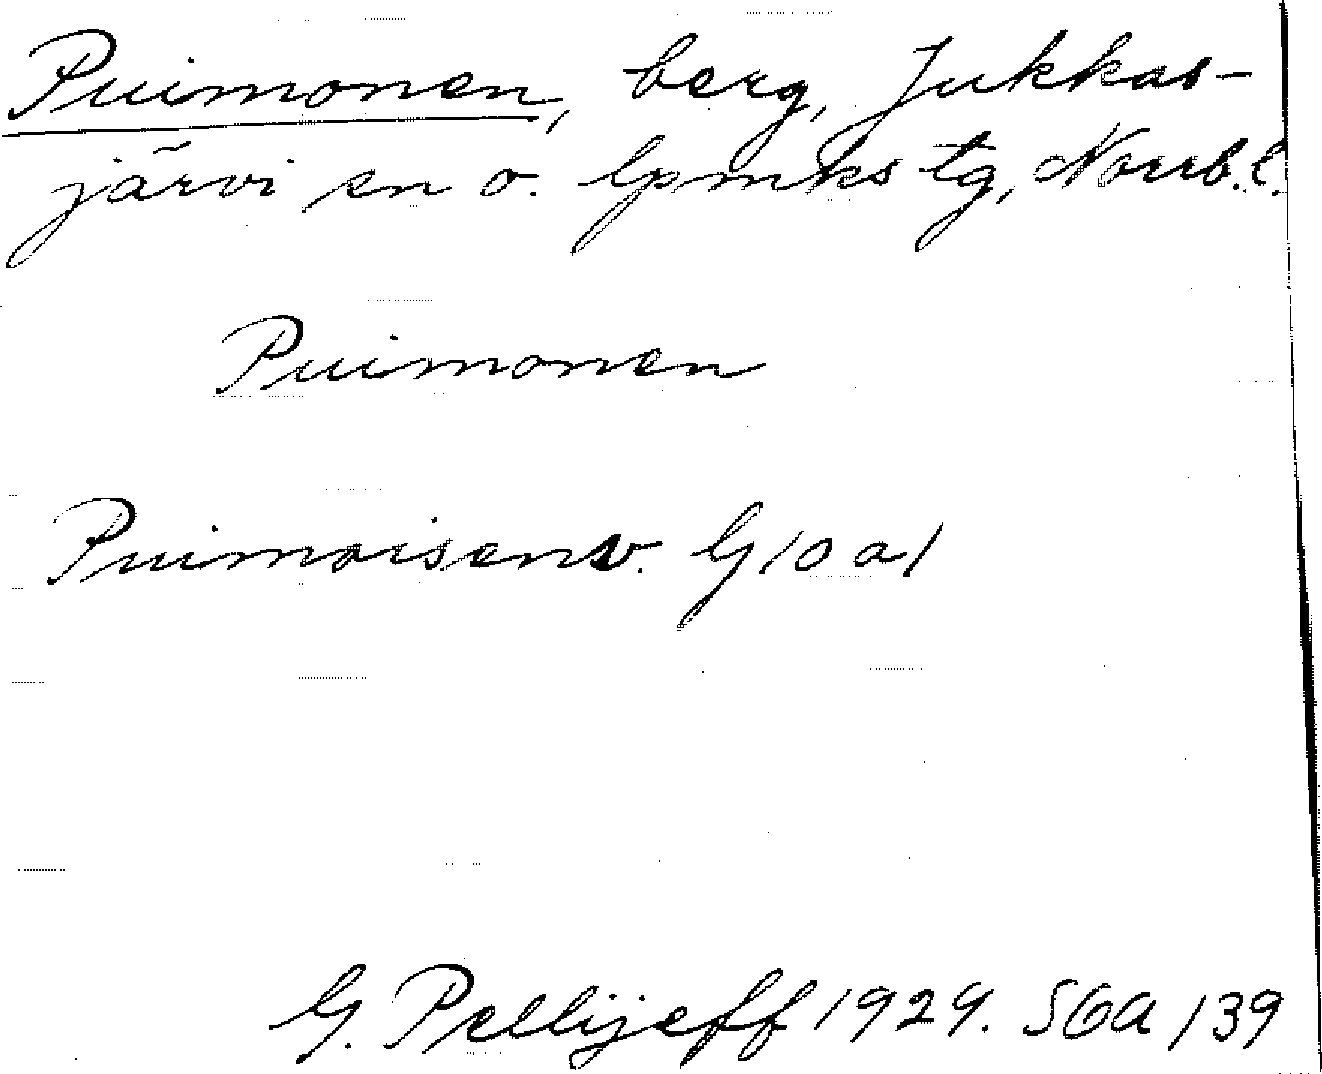 Puimonen, berg, Jukkas-
järvi sn o. lpmks tg, Norrb. l.
Puimonen
Puimoisenv. G 10 a 1
G. Pellijeff 1929. SGA 139